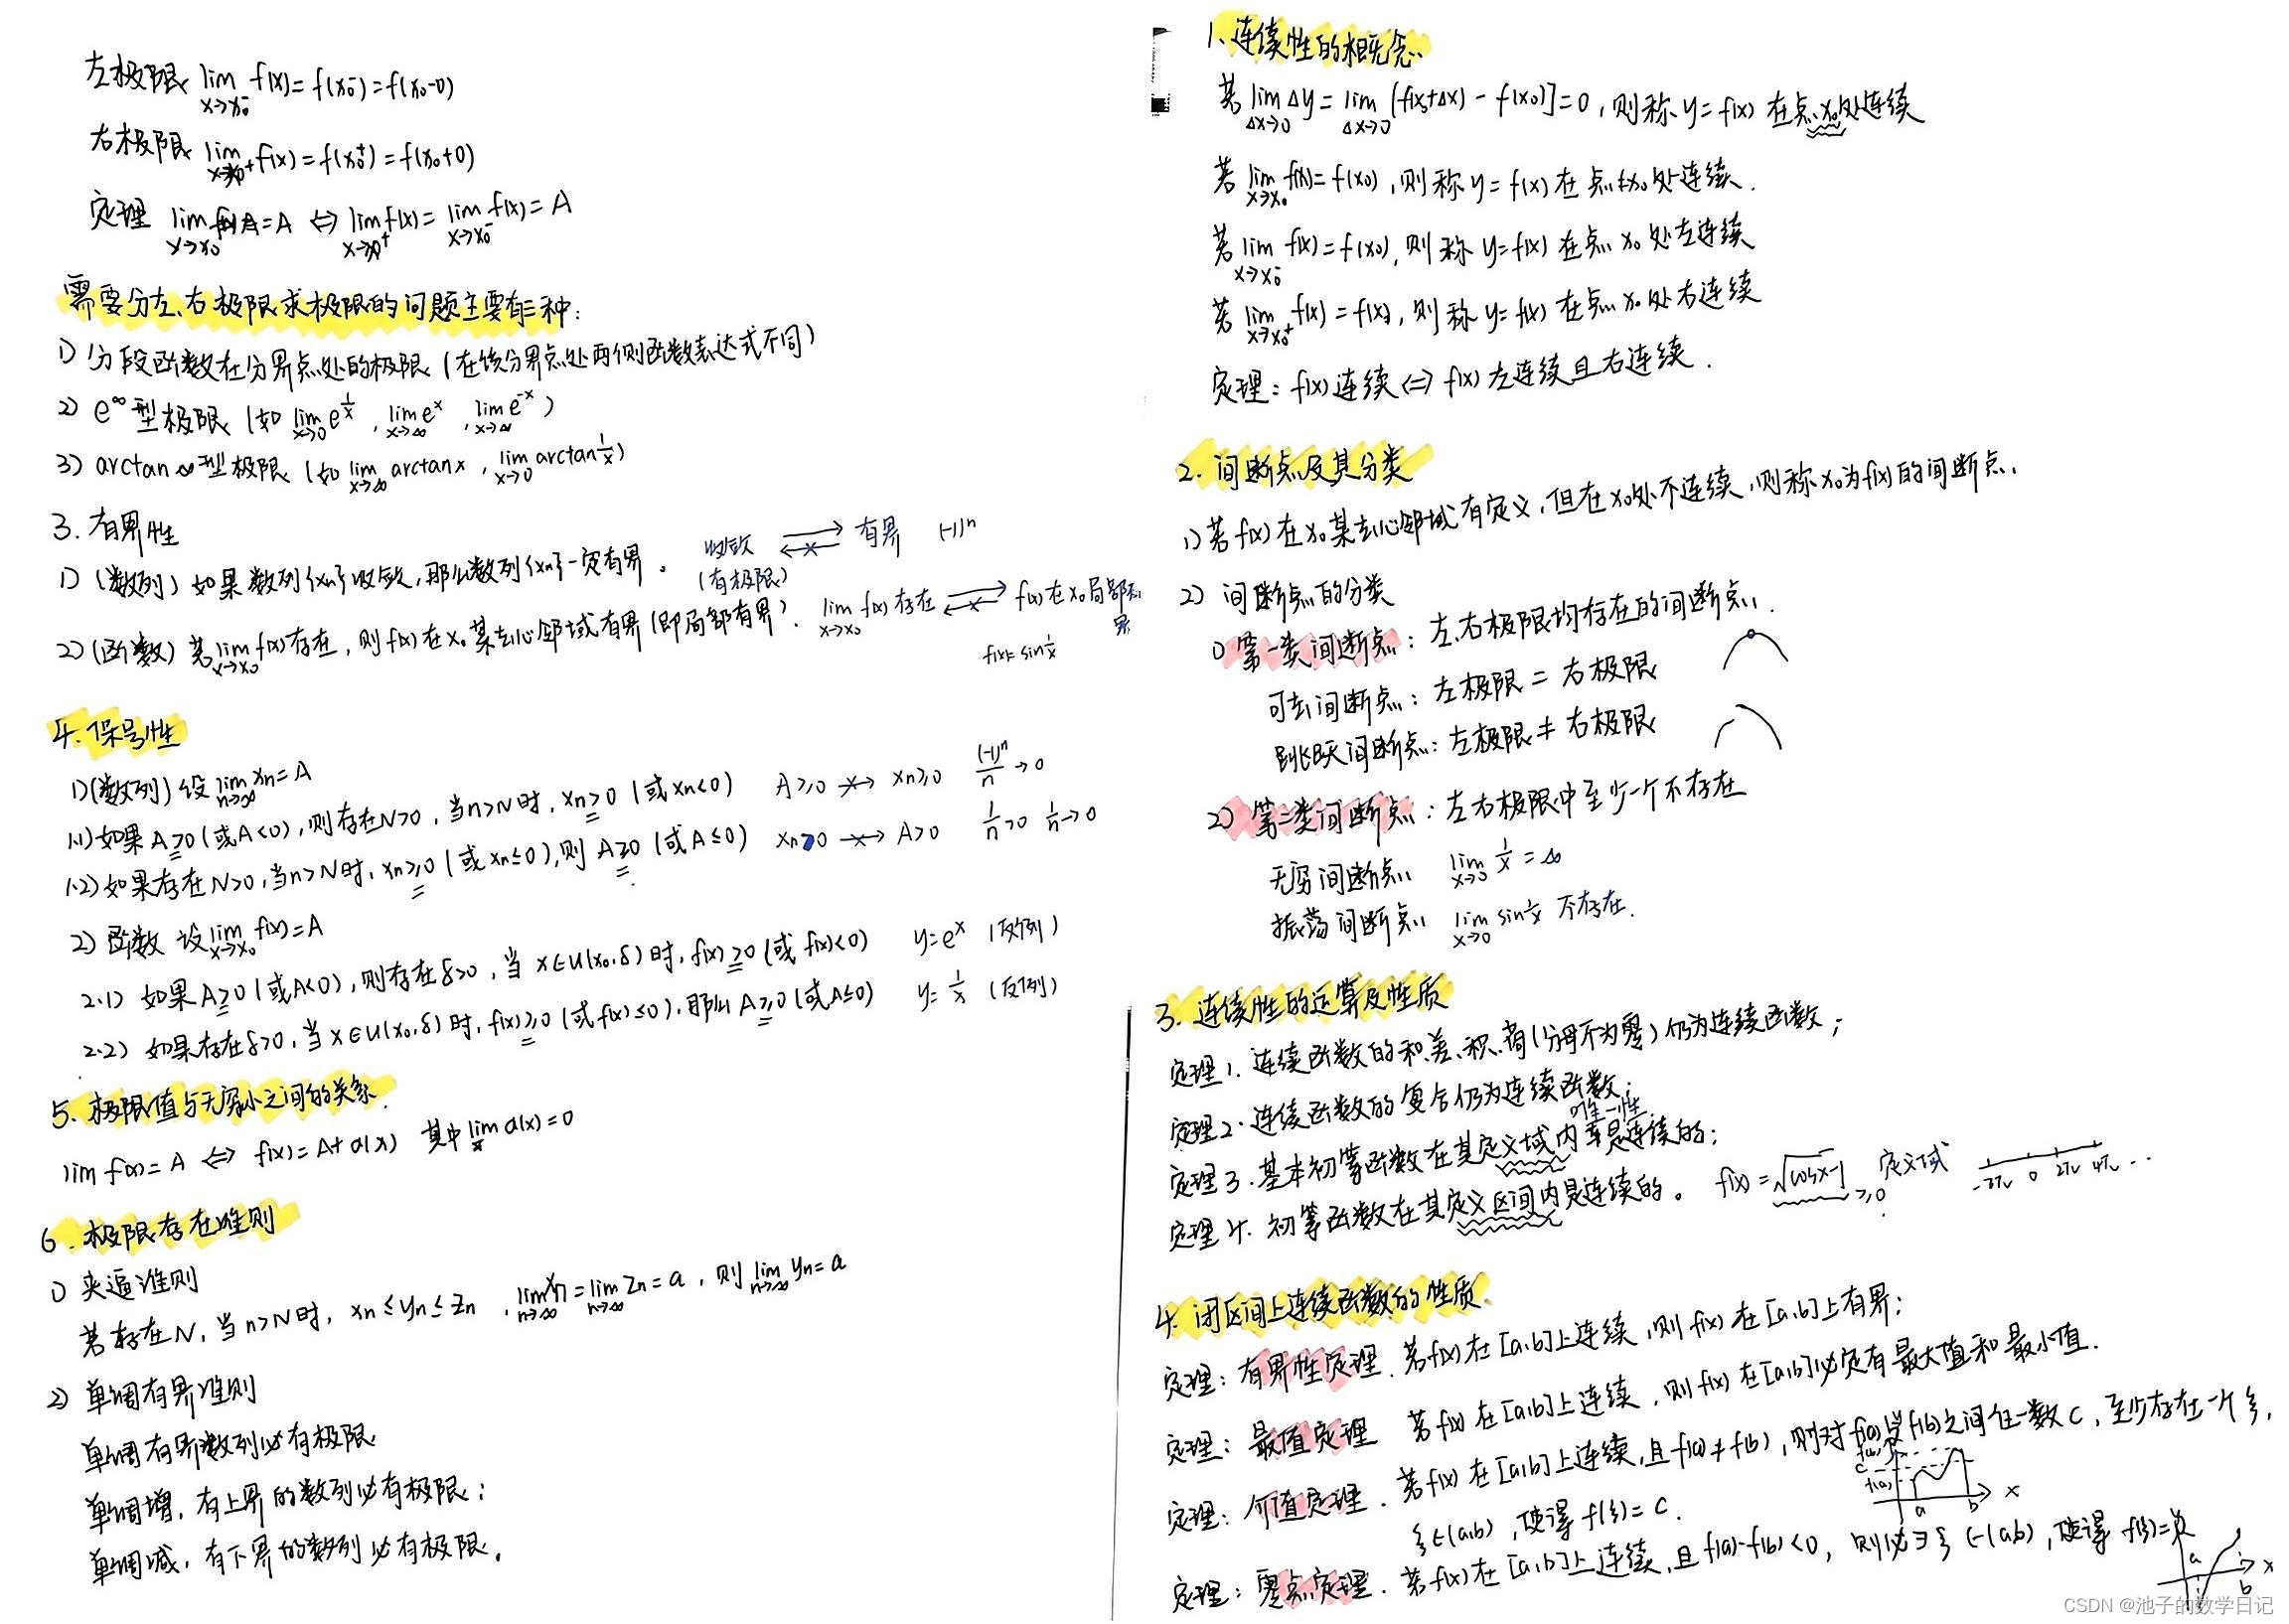 左极限 lim x→x₀⁻ f(x) = f(x₀⁻) = f(x₀-0)
右极限 lim x→x₀⁺ f(x) = f(x₀⁺) = f(x₀+0)
定理 lim x→x₀ = A ⇔ lim f(x) = lim x→x₀⁻ f(x) = A
需要分左、右极限求极限的问题主要有三种:
1) 分段函数在分界点处的极限 (在该分界点处两侧函数表达式不同)
2) e^∞型极限 (如 lim x→0 e^(1/x), lim x→∞ e^x, lim x→∞ e^(-x))
3) arctan∞型极限 (如 lim x→∞ arctanx, lim x→0 arctan 1/x)
3. 有界性
1) (数列) 如果数列{xn}收敛,那么数列{xn}一定有界。 收敛 (有极限) ⇄ 有界 (-1)^n
2) (函数) 若 lim x→x₀ f(x)存在, 则f(x)在x₀某去心邻域有界 (即局部有界). lim x→x₀ f(x)存在 ⇄ f(x)在x₀局部有界
f(x)= sin 1/x
4. 保号性
1) (数列) 设 lim n→∞ xn = A
1.1) 如果A>0 (或A<0), 则存在N>0, 当n>N时, xn>0 (或xn<0) A≥0 ↛ xn≥0 (-1)^n/n → 0
1.2) 如果存在N>0, 当n>N时, xn≥0 (或xn≤0), 则A≥0 (或A≤0) xn>0 ↛ A>0 1/n>0 1/n→0
2) 函数 设 lim x→x₀ f(x) = A
2.1) 如果A>0 (或A<0), 则存在δ>0, 当x∈U(x₀,δ)时, f(x)>0 (或f(x)<0) y=e^x (反例)
2.2) 如果存在δ>0, 当x∈U(x₀,δ)时, f(x)≥0 (或f(x)≤0), 那么A≥0 (或A≤0) y=1/x (反例)
5. 极限值与无穷小之间的关系
lim f(x) = A ⇔ f(x) = A+α(x) 其中 lim α(x)=0
6. 极限存在准则
1) 夹逼准则
若存在N, 当n>N时, xn ≤ yn ≤ zn, lim n→∞ xn = lim n→∞ zn = a, 则 lim n→∞ yn = a
2) 单调有界准则
单调有界数列必有极限
单调增, 有上界的数列必有极限;
单调减, 有下界的数列必有极限.
1. 连续性的概念
若 lim Δx→0 Δy = lim Δx→0 [f(x₀+Δx) - f(x₀)] = 0, 则称y=f(x)在点x₀处连续
若 lim x→x₀ f(x) = f(x₀), 则称y=f(x)在点x₀处连续.
若 lim x→x₀⁻ f(x) = f(x₀), 则称y=f(x)在点x₀处左连续
若 lim x→x₀⁺ f(x) = f(x₀), 则称y=f(x)在点x₀处右连续
定理: f(x)连续 ⇔ f(x)左连续且右连续.
2. 间断点及其分类
1) 若f(x)在x₀某去心邻域有定义, 但在x₀处不连续, 则称x₀为f(x)的间断点.
2) 间断点的分类
1) 第一类间断点: 左、右极限均存在的间断点.
可去间断点: 左极限 = 右极限
跳跃间断点: 左极限 ≠ 右极限
2) 第二类间断点: 左右极限中至少一个不存在
无穷间断点 lim x→0 1/x = ∞
振荡间断点 lim x→0 sin 1/x 不存在.
3. 连续性的运算及性质
定理1. 连续函数的和、差、积、商(分母不为零)仍为连续函数;
定理2. 连续函数的复合仍为连续函数;
定理3. 基本初等函数在其定义域内是连续的;
定理4. 初等函数在其定义区间内是连续的。 f(x) = √(cosx-1) ≥0 定义域 -2π 0 2π 4π ...
4. 闭区间上连续函数的性质.
定理: 有界性定理. 若f(x)在[a,b]上连续, 则f(x)在[a,b]上有界;
定理: 最值定理 若f(x)在[a,b]上连续, 则f(x)在[a,b]必定有最大值和最小值.
定理: 介值定理. 若f(x)在[a,b]上连续, 且f(a)≠f(b), 则对f(a)与f(b)之间任一数C, 至少存在一个ξ,
ξ∈(a,b), 使得f(ξ)=C.
f(b) C f(a) a b x
定理: 零点定理. 若f(x)在[a,b]上连续, 且f(a)·f(b)<0, 则必∃ξ∈(a,b), 使得f(ξ)=0
a b x
CSDN @池子的数学日记